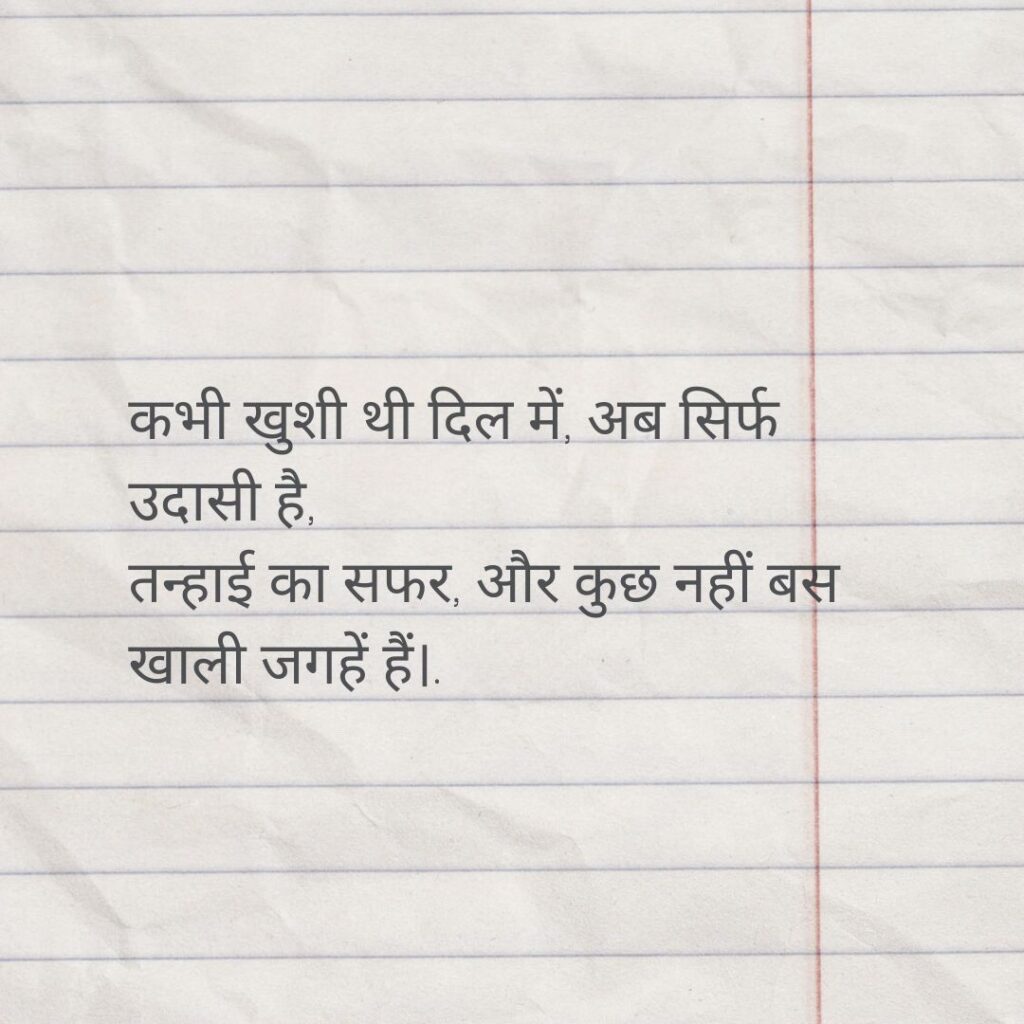 कभी खुशी थी दिल में, अब सिर्फ
उदासी है,
तन्हाई का सफर, और कुछ नहीं बस
खाली जगहें हैं।.